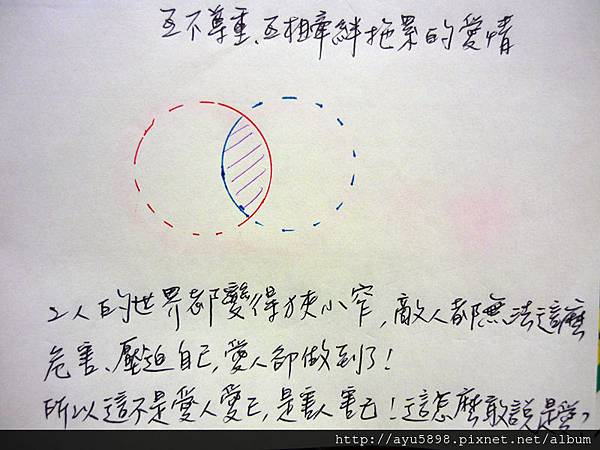 互不尊重、互相牽絆拖累的愛情
2人的世界都變得狹小窄,敵人都無法這麼
危害、壓迫自己,愛人卻做到了!
所以這不是愛人愛己,是害人害己!這怎麼敢說是愛?
http://ayu5898.pixnet.net/album